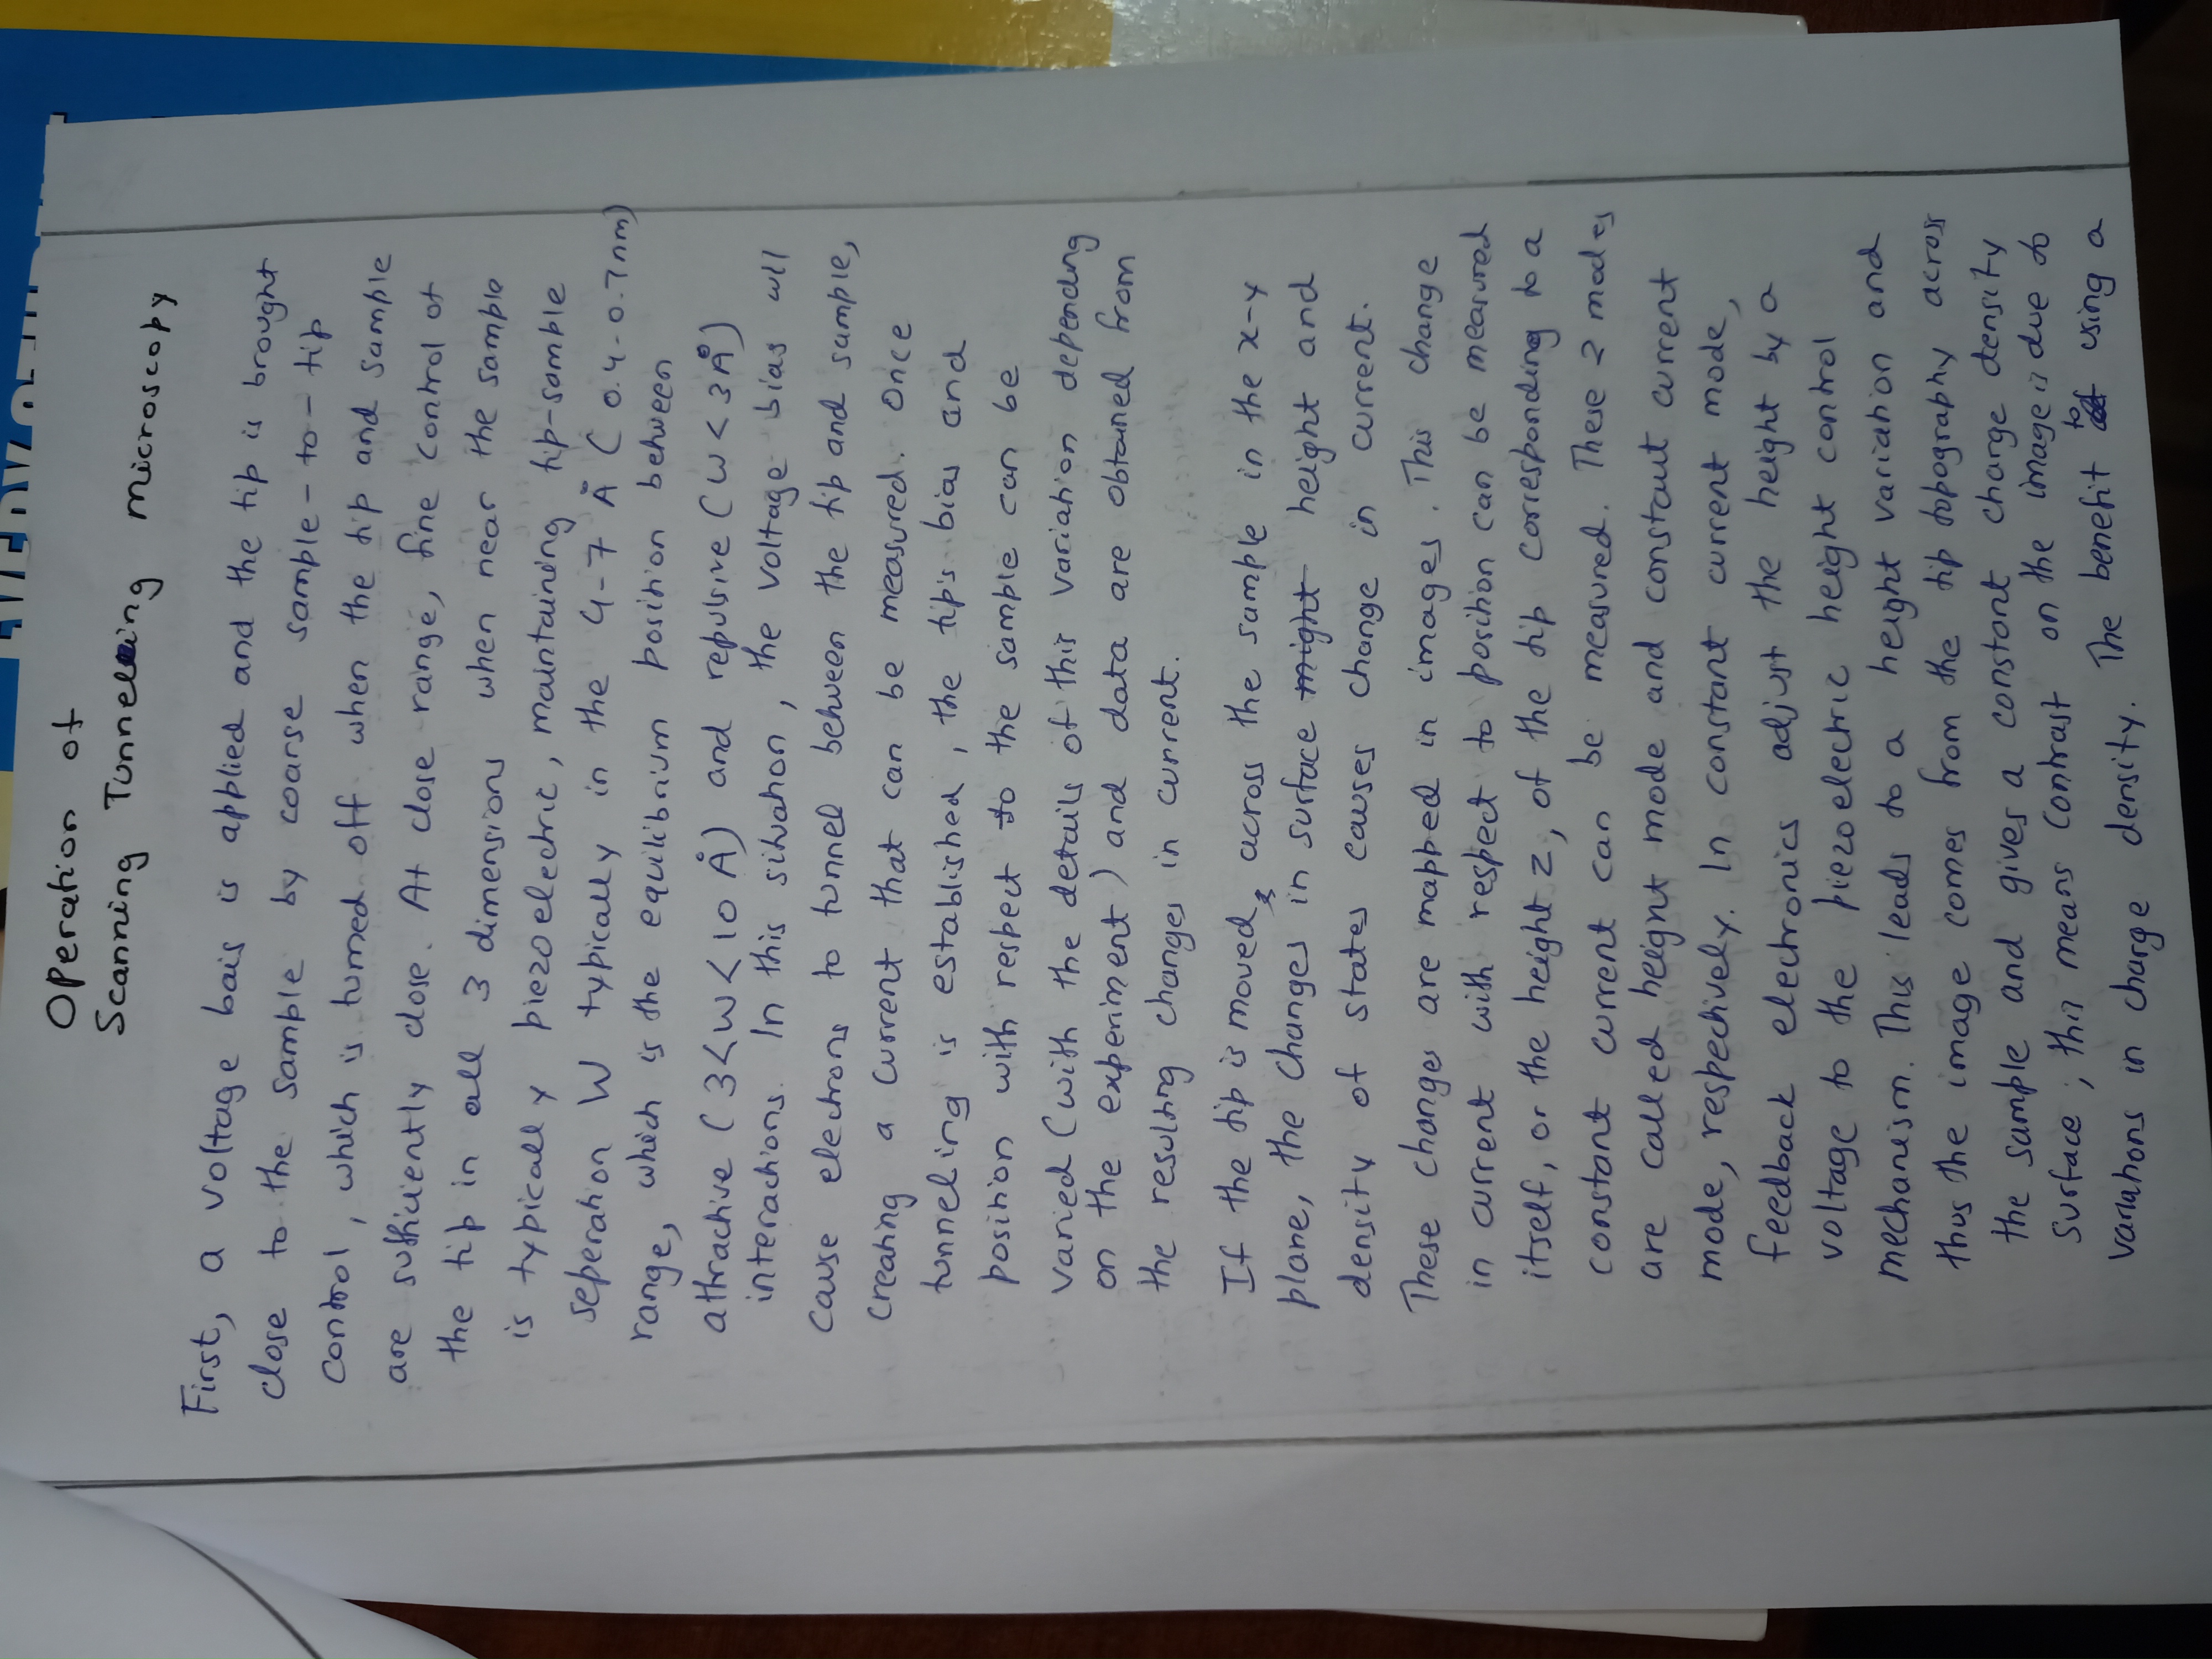 Operation of
Scanning Tunneling Microscopy
First, a voltage bais is applied and the tip is brought
close to the sample by coarse sample-to-tip
control, which is turned off when the tip and sample
are sufficiently close. At close range, fine control of
the tip in all 3 dimensions when near the sample
is typically piezoelectric, maintaining tip-sample
seperation W typically in the 4-7 Å (0.4-0.7nm)
range, which is the equilibrium position between
attractive (3<W<10 Å) and repulsive (W<3Å)
interactions. In this situation, the voltage bias will
cause electrons to tunnel between the tip and sample,
creating a current that can be measured. Once
tunneling is established, the tip's bias and
position with respect to the sample can be
varied (with the details of this variation depending
on the experiment) and data are obtained from
the resulting changes in current.
If the tip is moved, across the sample in the x-y
plane, the changes in surface might height and
density of states causes change in current.
These changes are mapped in images. This change
in current with respect to position can be measured
itself, or the height z, of the tip corresponding to a
constant current can be measured. These 2 modes
are called height mode and constant current
mode, respectively. In constant current mode,
feedback electronics adjust the height by a
voltage to the piezoelectric height control
mechanism. This leads to a height variation and
thus the image comes from the tip topography across
the sample and gives a constant charge density
surface; this means contrast on the image is due to
variations in charge density. The benefit to using a